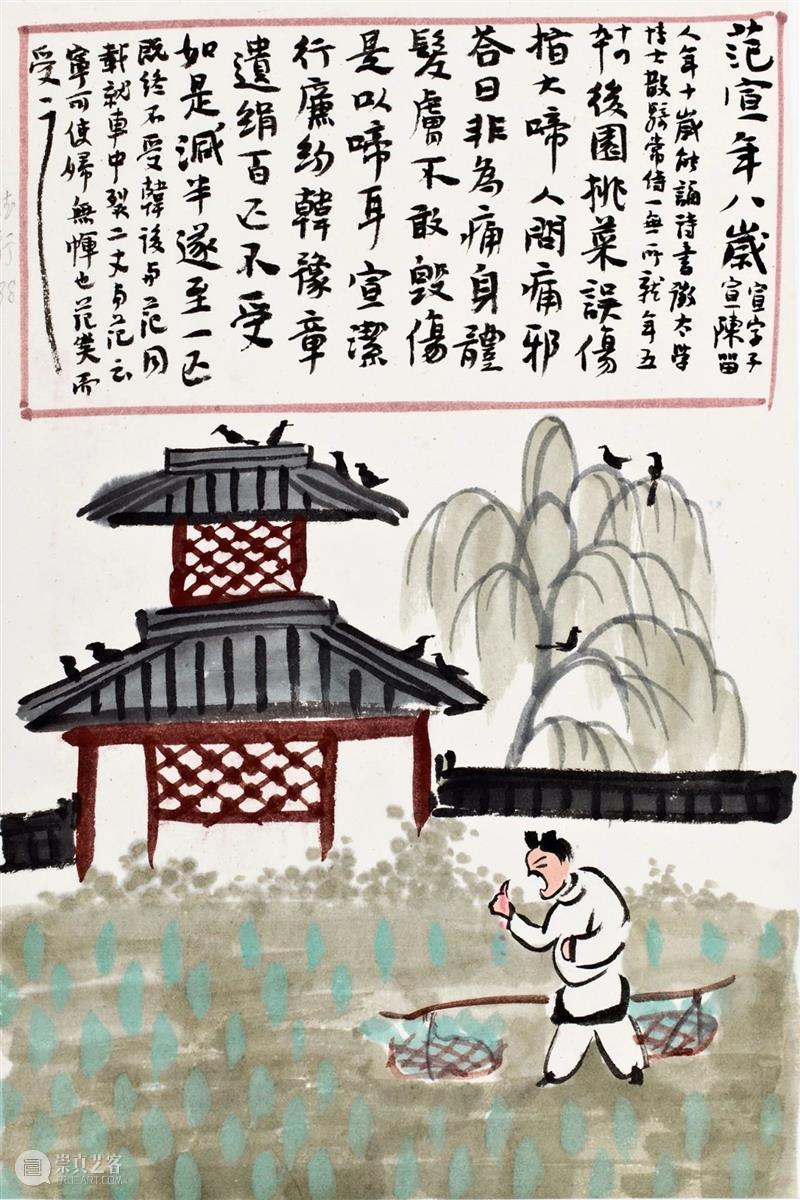 范宣年八歲宣字子
宣陳留
人年十歲能誦詩書徵太學
博士散騎常侍一無所就年五
十四
卒後園挑菜誤傷
指大啼人問痛邪
答曰非為痛身體
髮膚不敢毀傷
是以啼耳宣潔
行廉約韓豫章
遺絹百匹不受
如是減半遂至一匹
既終不受韓後与范同
載就車中裂二丈与范云
寧可使婦無幝也范笑而
受之
崇真艺客